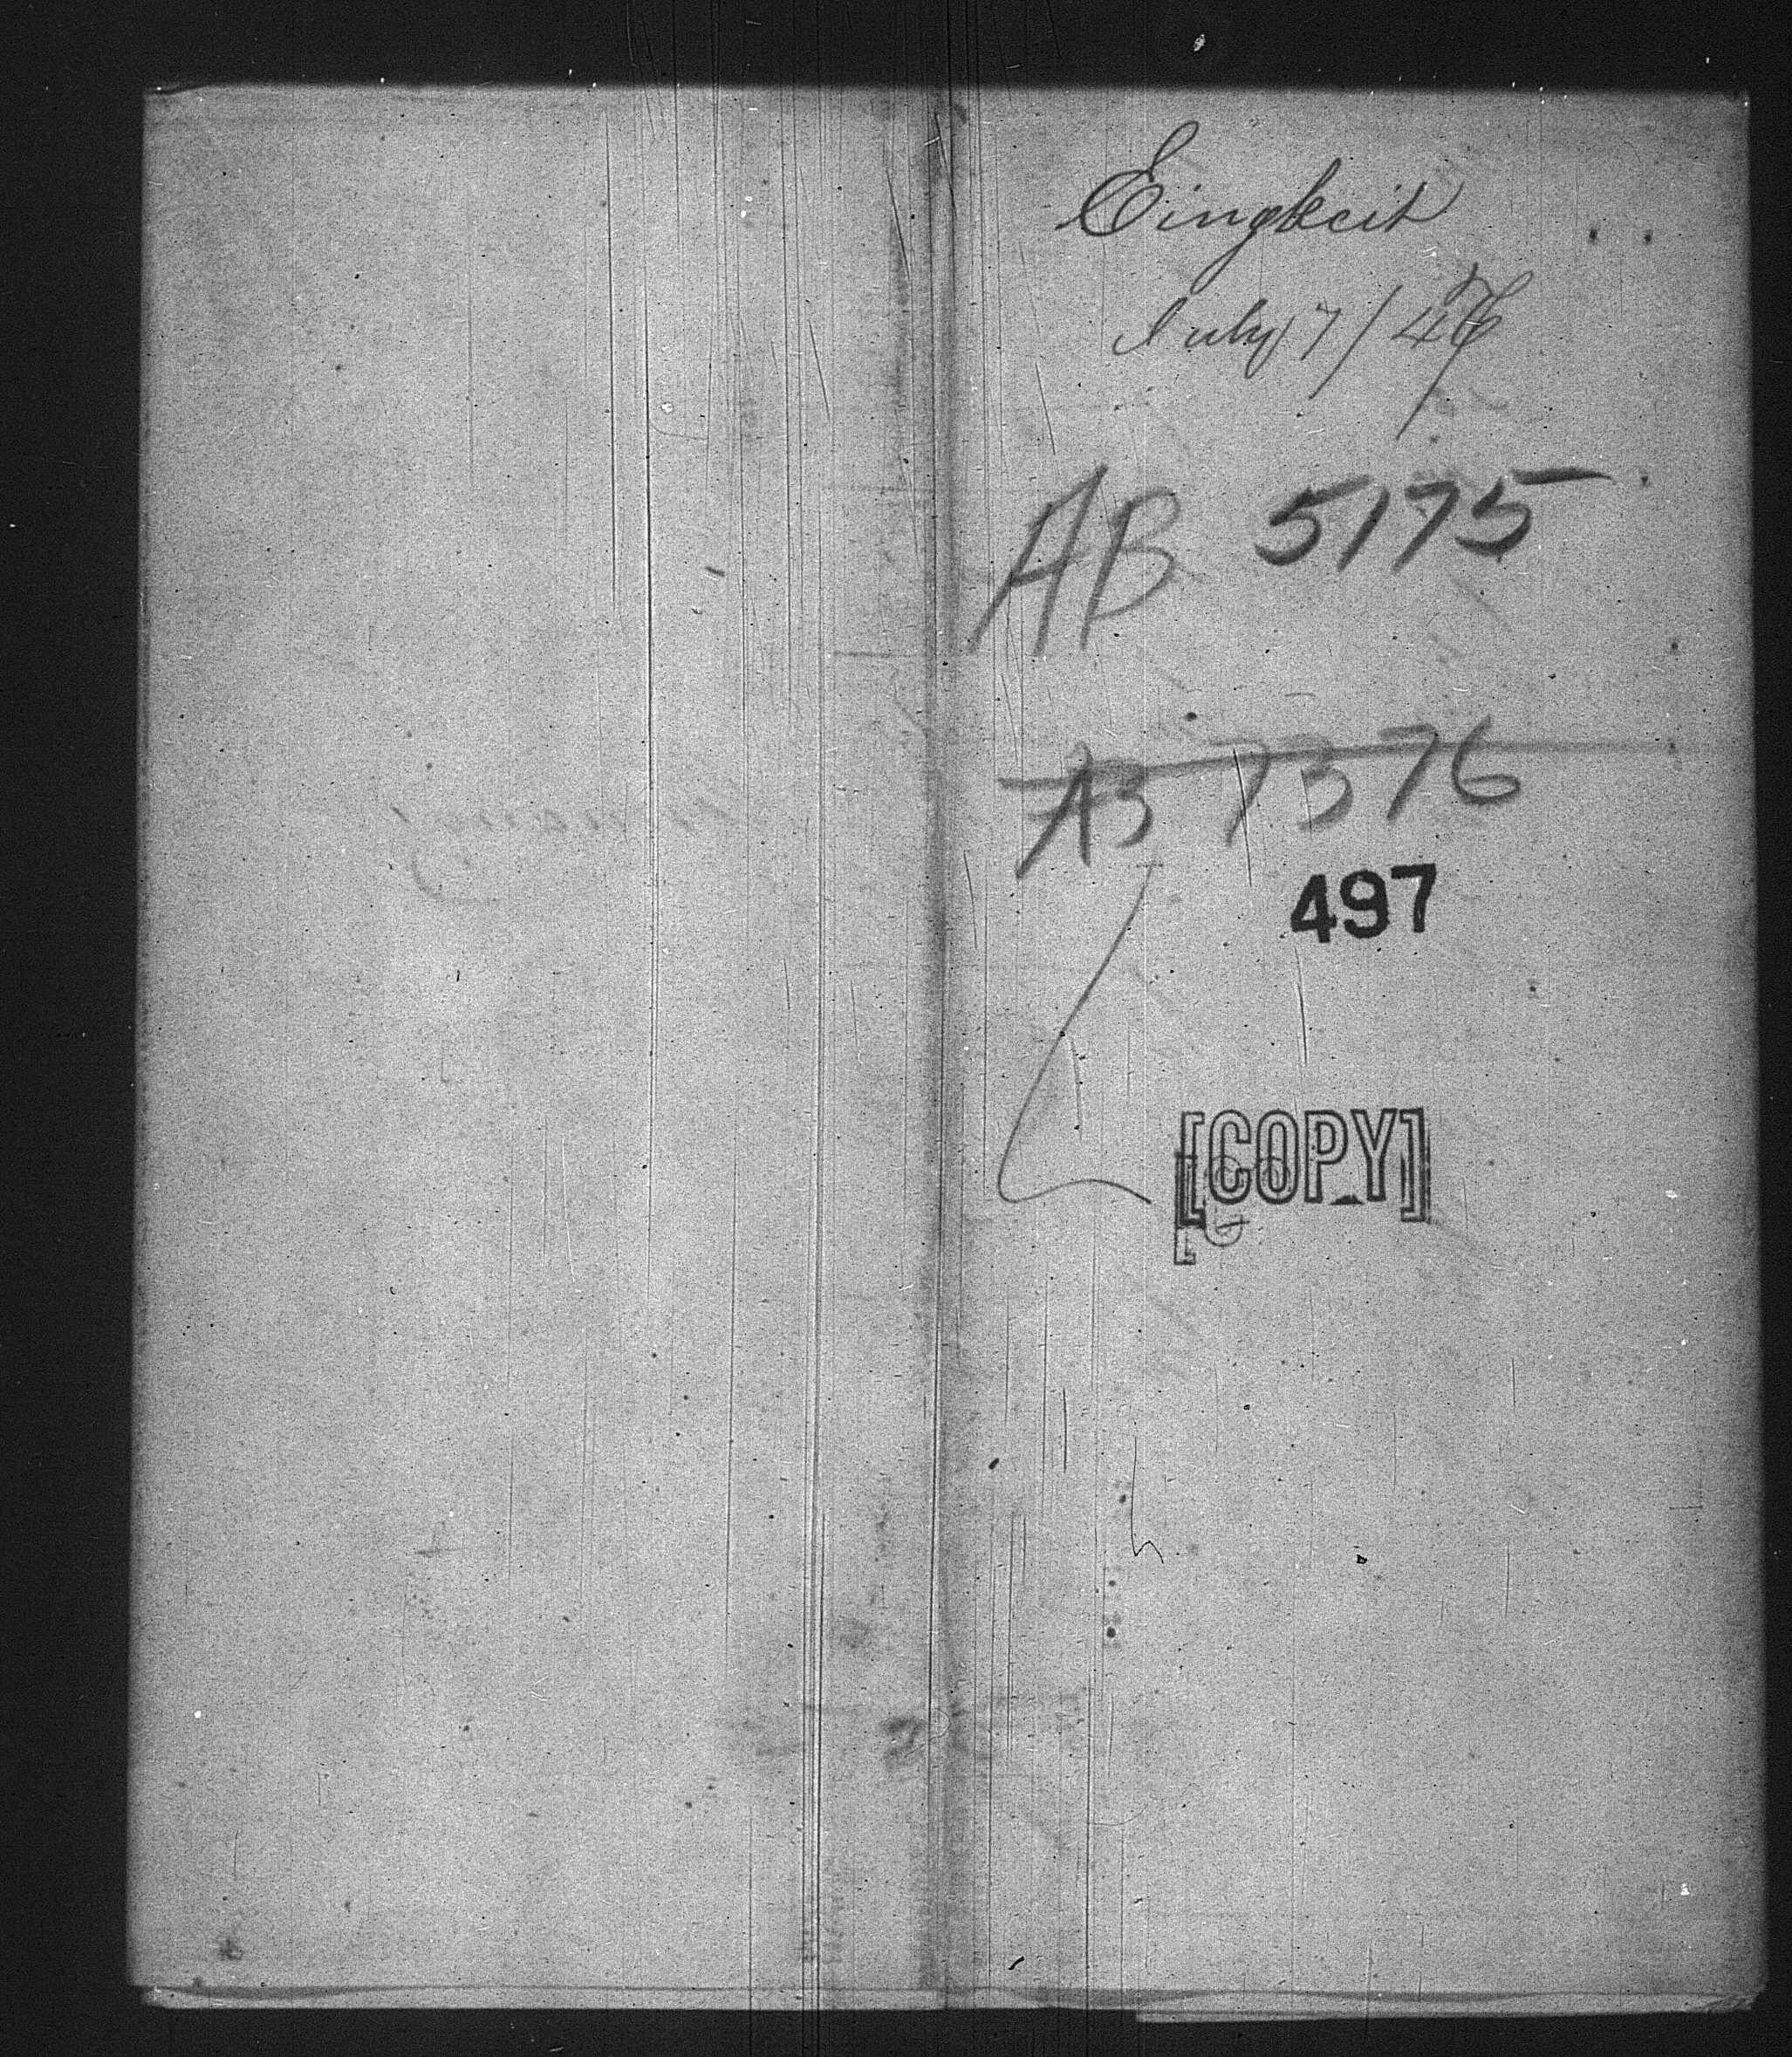 Eingkeit
July 7/46
AB 5175
AB 7376
497
[COPY]